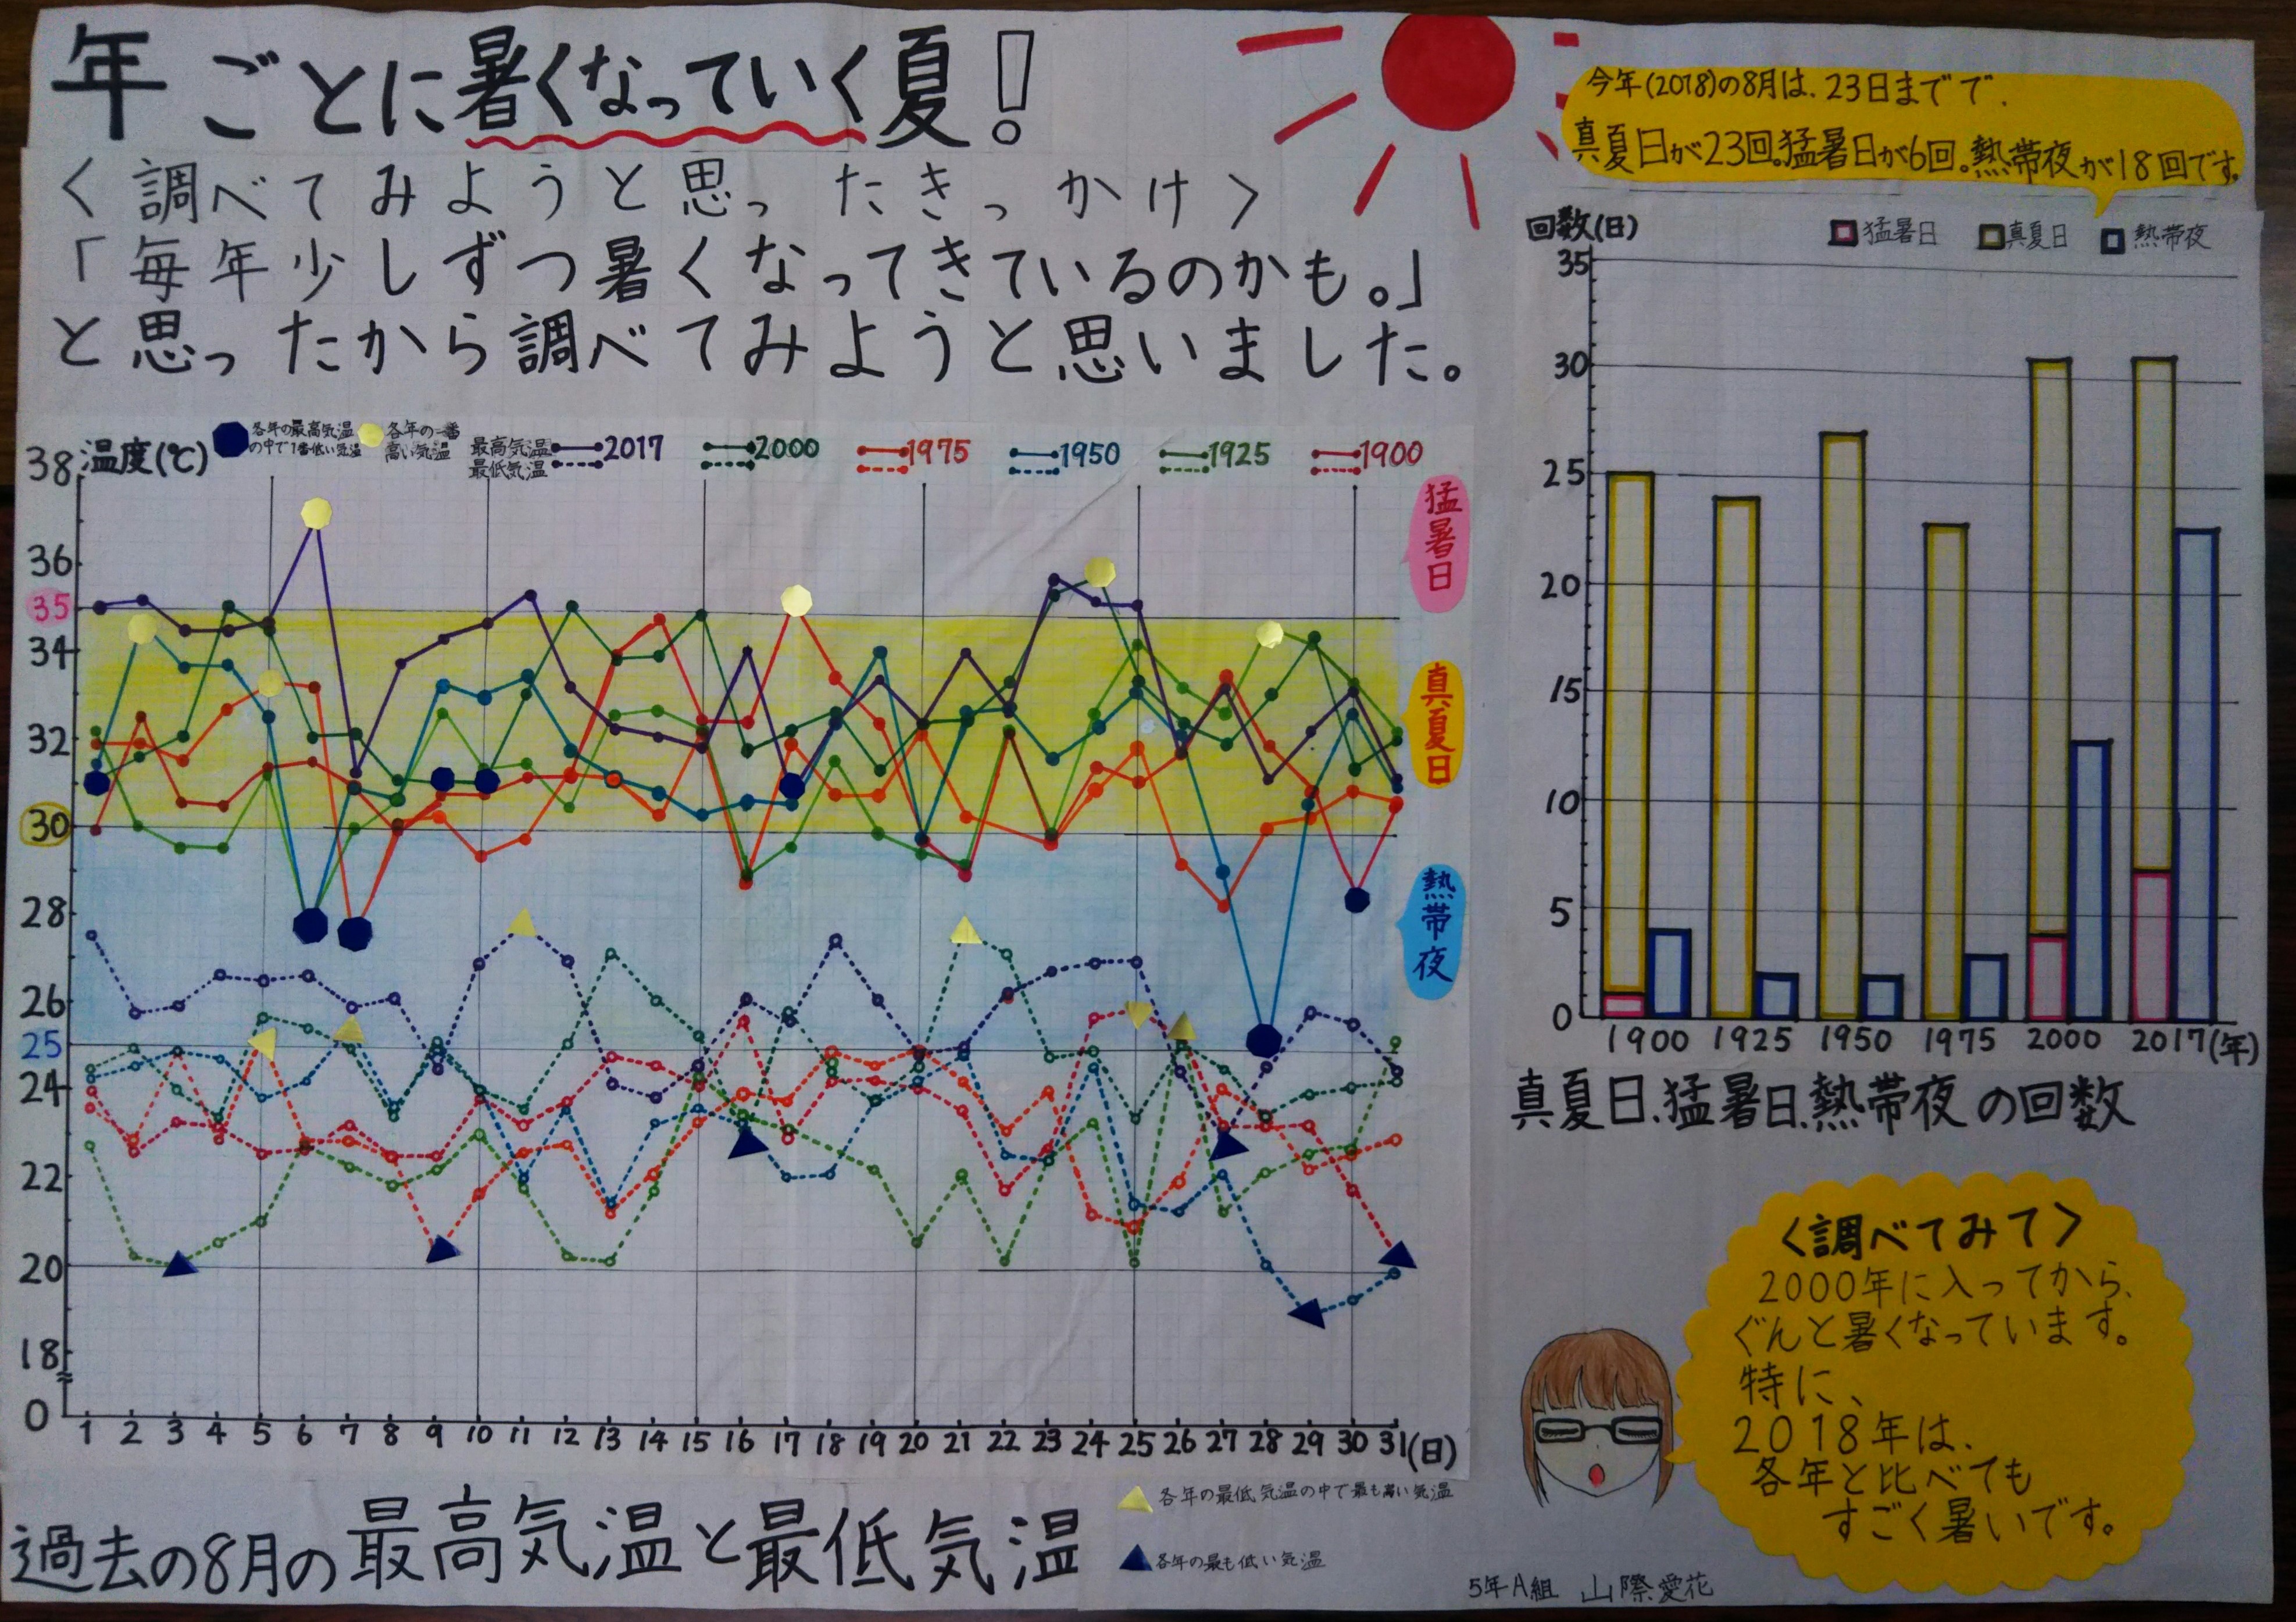 年ごとに暑くなっていく夏!
<調べてみようと思ったきっかけ>
「毎年少しずつ暑くなってきているのかも。」
と思ったから調べてみようと思いました。
今年(2018)の8月は、23日までで、
真夏日が23回。猛暑日が6回。熱帯夜が18回です。
温度(℃)
各年の最高気温
の中で1番低い気温
各年の一番
高い気温
最高気温
最低気温
2017
2000
1975
1950
1925
1900
38
36
35
34
32
30
28
26
25
24
22
20
18
0
猛暑日
真夏日
熱帯夜
1 2 3 4 5 6 7 8 9 10 11 12 13 14 15 16 17 18 19 20 21 22 23 24 25 26 27 28 29 30 31(日)
過去の8月の最高気温と最低気温
各年の最低気温の中で最も高い気温
各年の最も低い気温
回数(日)
猛暑日 真夏日 熱帯夜
35
30
25
20
15
10
5
0
1900 1925 1950 1975 2000 2017(年)
真夏日、猛暑日、熱帯夜の回数
<調べてみて>
2000年に入ってから、
ぐんと暑くなっています。
特に、
2018年は、
各年と比べても
すごく暑いです。
5年A組 山際愛花